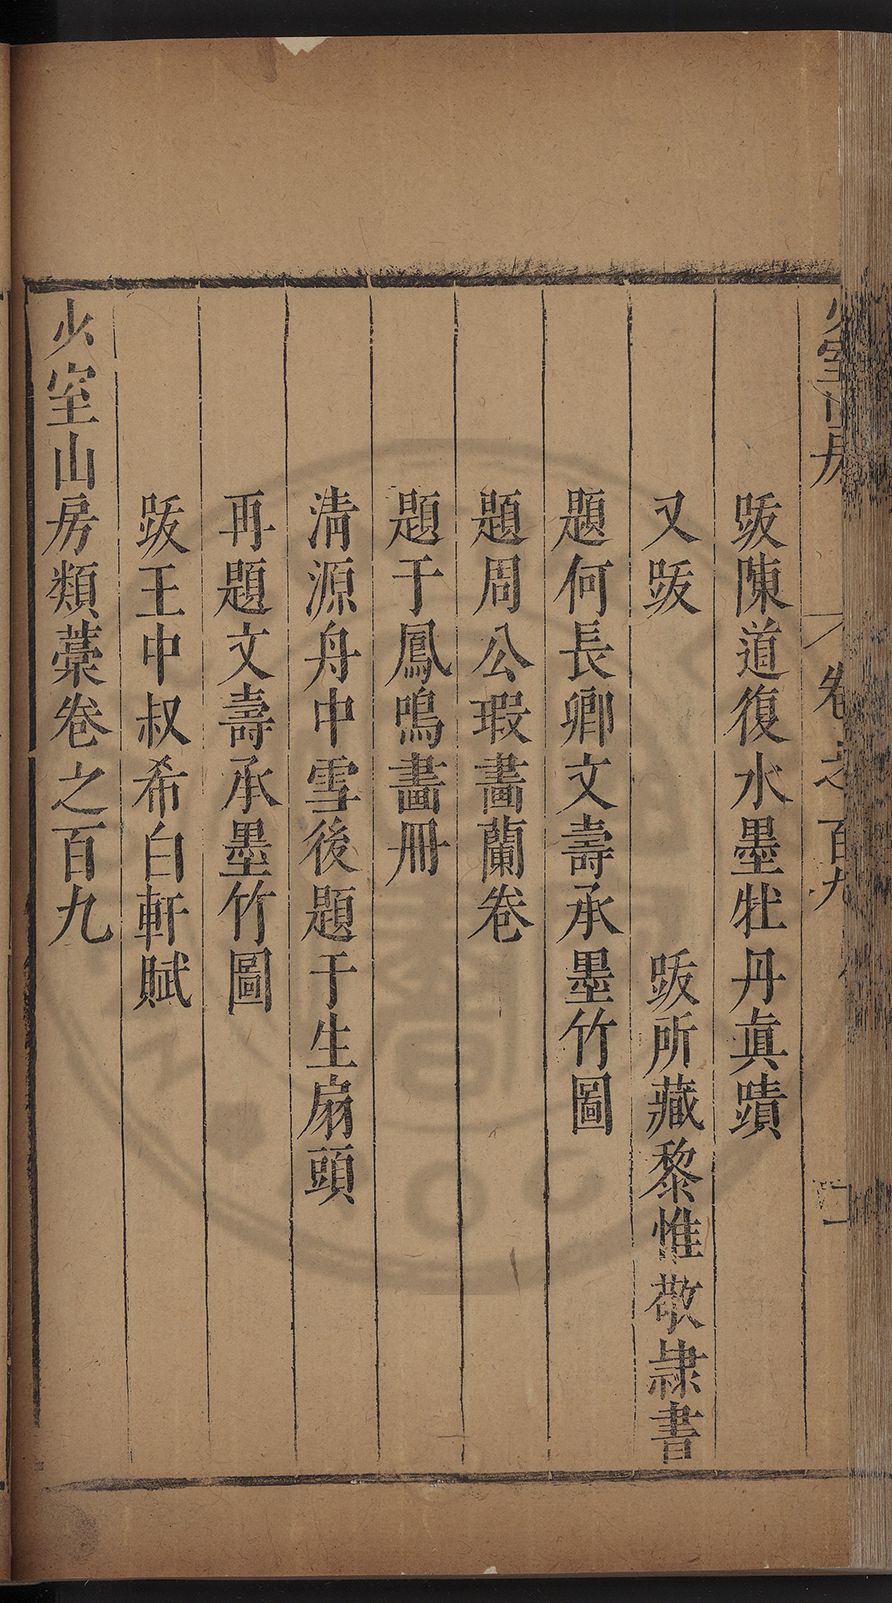 少室山房 卷之百九 二
跋陳道復水墨牡丹真蹟
又跋 跋所藏黎惟敬隷書
題何長卿文壽承墨竹圖
題周公瑕畵蘭卷
題于鳳鳴畵冊
淸源舟中雪後題于生扇頭
再題文壽承墨竹圖
跋王中叔希白軒賦
少室山房類藁卷之百九